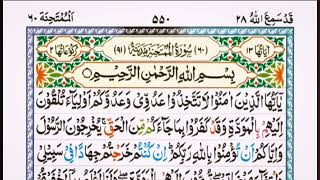 قَدْ سَمِعَ اللّٰهُ ٢٨ ٥٥٠ اَلْمُمْتَحِنَة ٦٠
اٰیَاتُهَا ١٣ (٦٠) سُوْرَةُ الْمُمْتَحِنَةِ مَدَنِیَّةٌ (٩١) رُكُوْعَاتُهَا ٢
بِسْمِ اللّٰهِ الرَّحْمٰنِ الرَّحِیْمِ
یٰۤاَیُّهَا الَّذِیْنَ اٰمَنُوْا لَا تَتَّخِذُوْا عَدُوِّیْ وَعَدُوَّكُمْ اَوْلِیَآءَ تُلْقُوْنَ
اِلَیْهِمْ بِالْمَوَدَّةِ وَقَدْ كَفَرُوْا بِمَا جَآءَكُمْ مِّنَ الْحَقِّ یُخْرِجُوْنَ الرَّسُوْلَ
وَاِیَّاكُمْ اَنْ تُؤْمِنُوْا بِاللّٰهِ رَبِّكُمْ اِنْ كُنْتُمْ خَرَجْتُمْ جِهَادًا فِیْ سَبِیْلِیْ